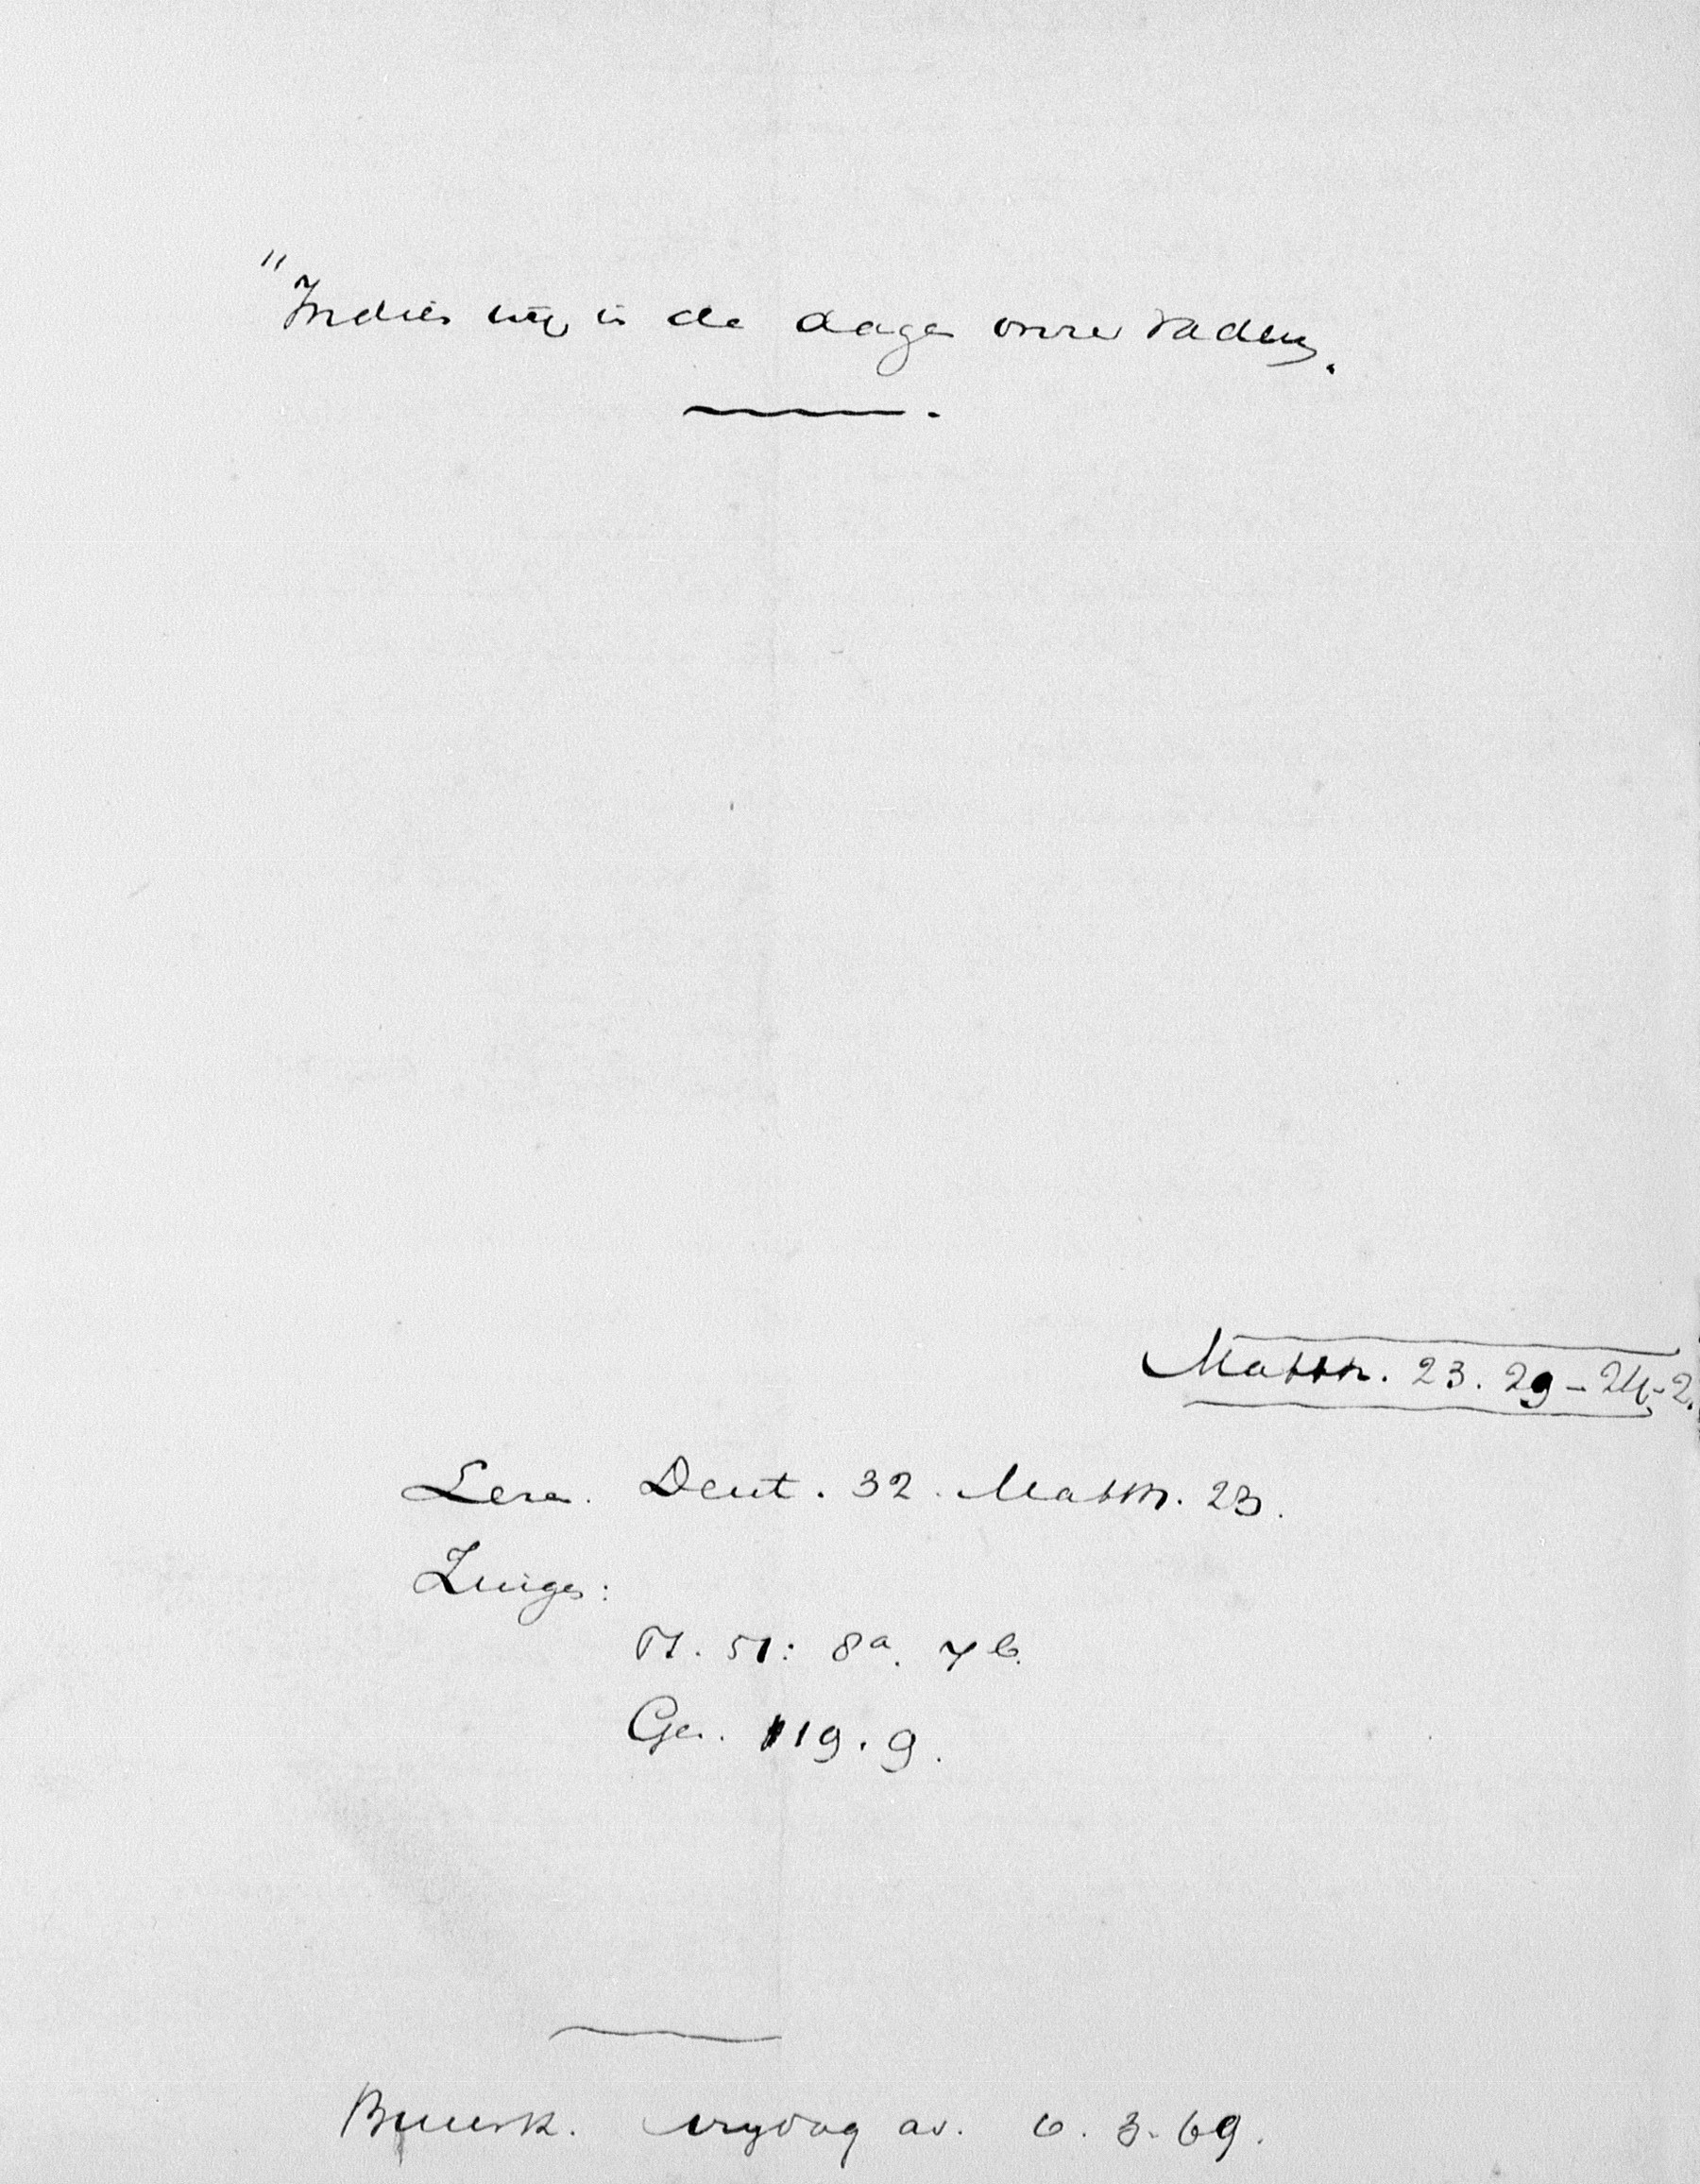 "Indien wij in de dagen onzer vaderen.
Matth. 23. 29 - 24-2.
Leze. Deut. 32. Matth. 23.
Zinge:
Ps. 51: 8a. 7b.
Ge. 119. 9.
vrydag av. 6. 3. 69.